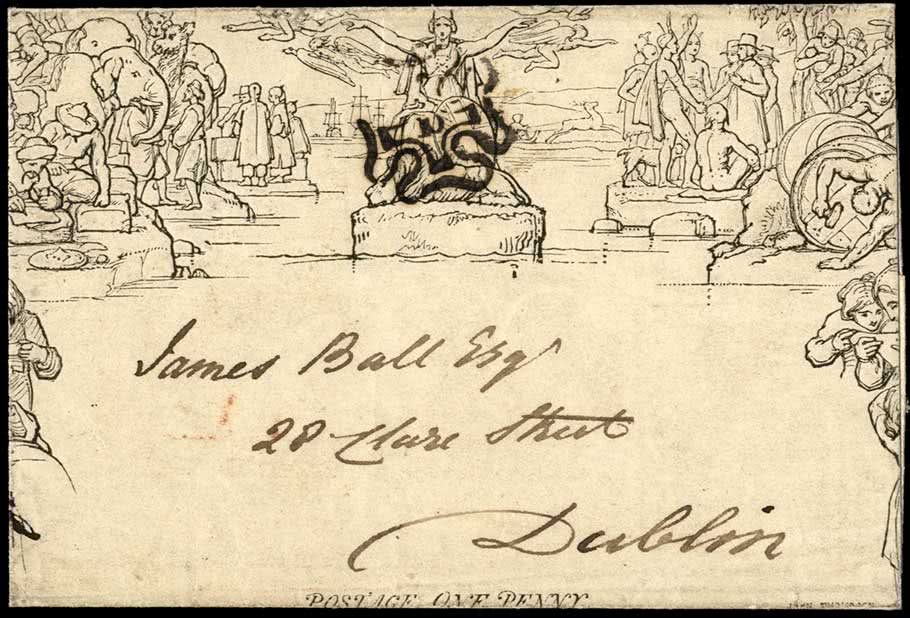 James Ball Esqr
28 Clare Street
Dublin
POSTAGE ONE PENNY
JOHN THOMPSON